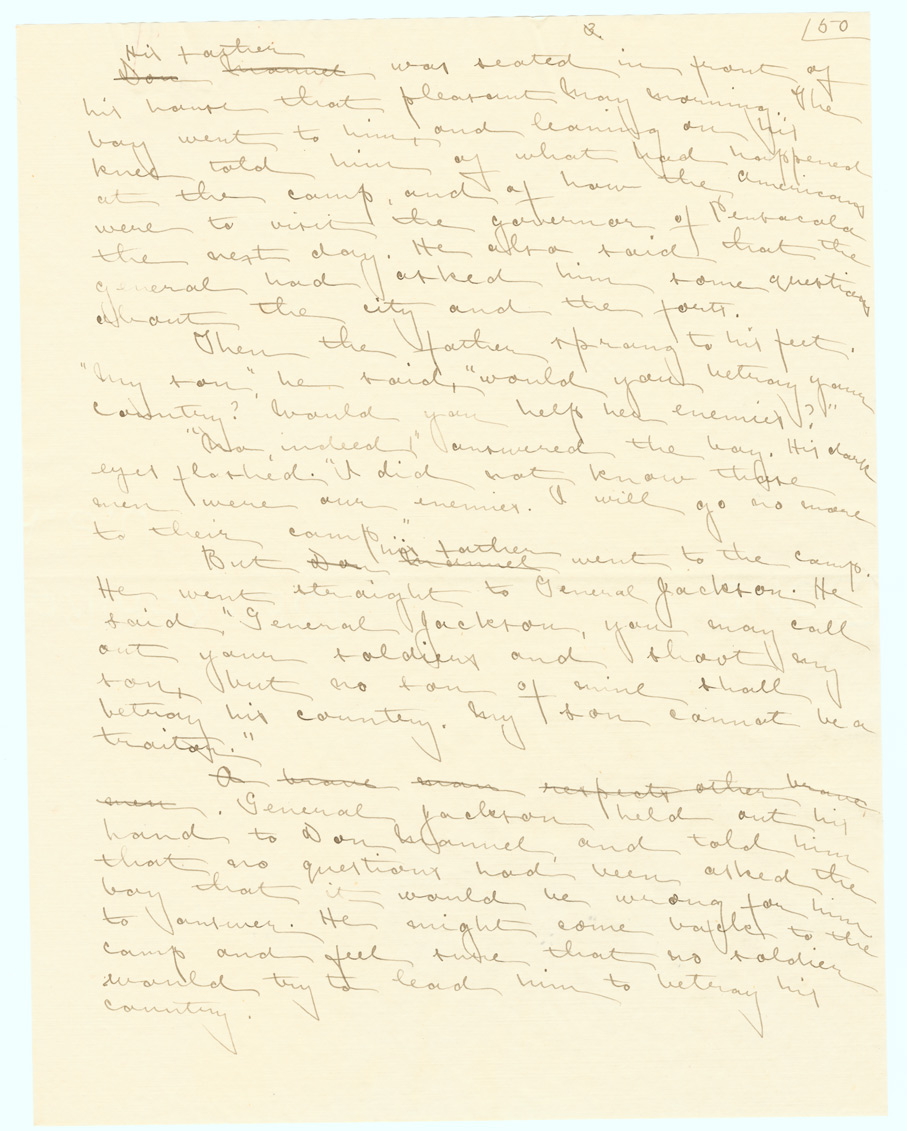 2. 150
His father
Don Manuel was seated in front of
his house that pleasant May morning. The
boy went to him, and leaning on his
knee told him of what had happened
at the camp, and of how the Americans
were to visit the governor of Pensacola
the next day. He also said that the
general had asked him some questions
about the city and the forts.
Then the father sprang to his feet.
"My son" he said, "would you betray your
country? Would you help her enemies?"
"No, indeed!" answered the boy. His dark
eyes flashed. "I did not know these
men were our enemies. I will go no more
to their camp."
his father
But Don Manuel went to the camp.
He went straight to General Jackson. He
said, "General Jackson, you may call
out your soldiers and shoot my
son, but no son of mine shall
betray his country. My son cannot be a
traitor."
A brave man respects other brave
men. General Jackson held out his
hand to Don Manuel, and told him
that no questions had been asked the
boy that it would be wrong for him
to answer. He might come back to the
camp and feel sure that no soldier
would try to lead him to betray his
country.